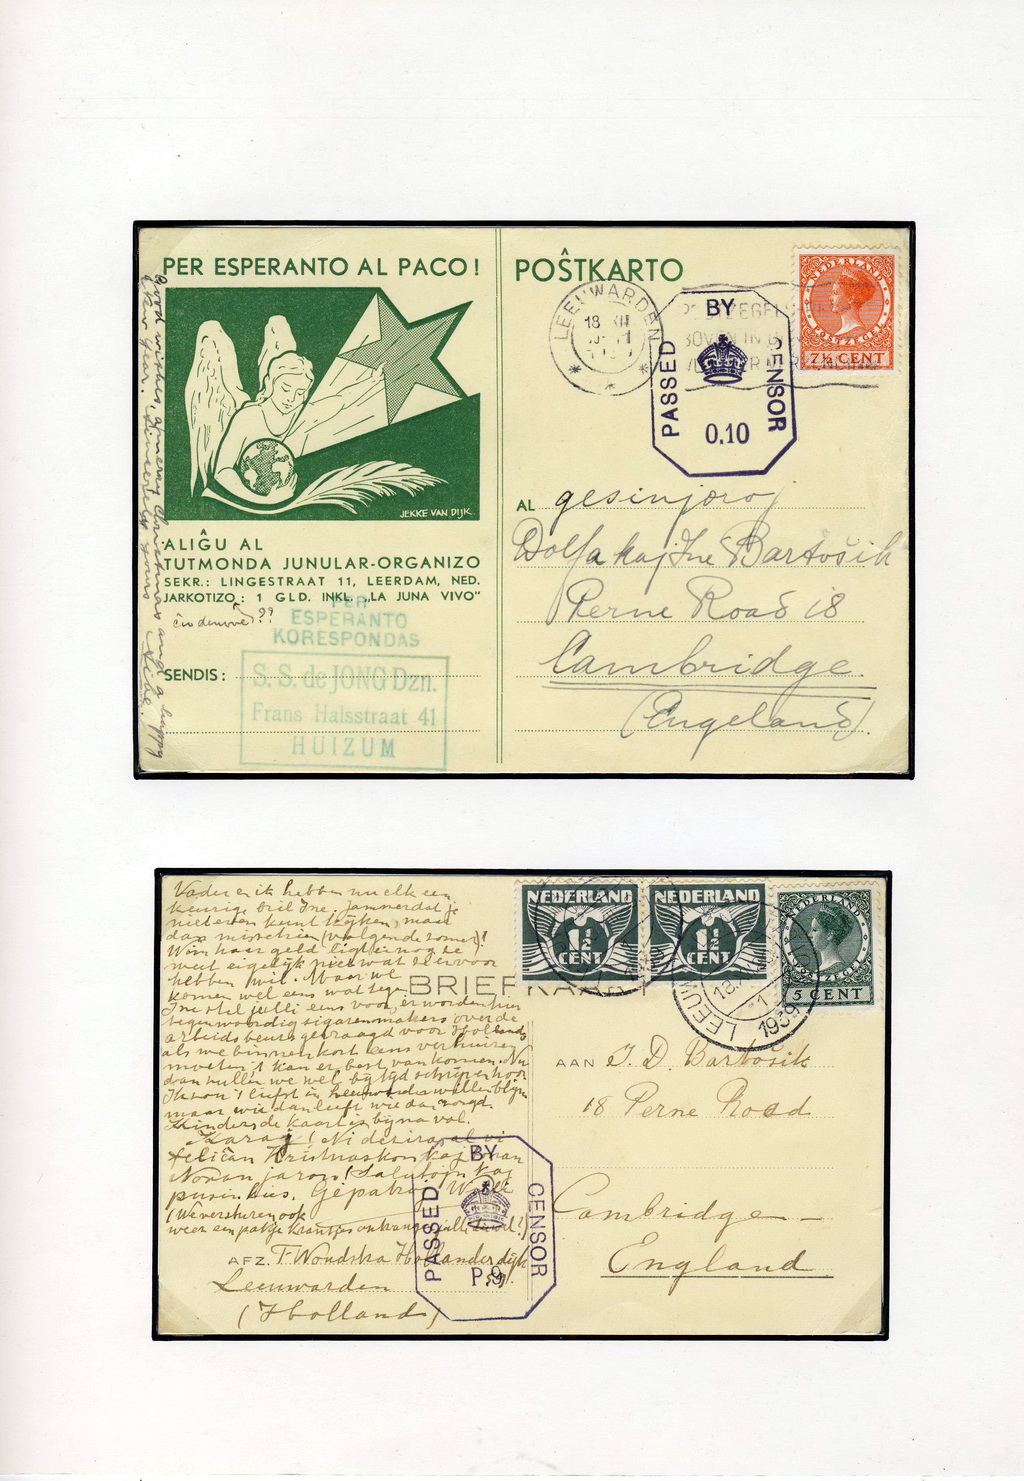 PER ESPERANTO AL PACO!
JEKKE VAN DIJK.
ALIĜU AL
TUTMONDA JUNULAR-ORGANIZO
SEKR.: LINGESTRAAT 11, LEERDAM, NED.
JARKOTIZO: 1 GLD. INKL. „LA JUNA VIVO"
ĉu denove??
PER
ESPERANTO
KORESPONDAS
SENDIS:
S. S. de JONG Dzn.
Frans Halsstraat 41
HUIZUM
Good wishes, a merry Christmas and a happy
New Year. Sincerely yours
POŜTKARTO
LEEUWARDEN
18 XII
PASSED BY CENSOR
0.10
NEDERLAND
POSTZEGEL
7½ CENT
AL gesinjoroj
Dolfa kaj Ine Bartošik
Perne Road 18
Cambridge.
(Engeland).
Vader en ik hebben nu elk een
keurige bril Ine, jammer dat je
niet even kunt kijken, maar
dan misschien (volgende zomer)?
Wim haar geld ligt er nog
weet eigelijk niet wat ze ervoor
hebben wil. Maar we
komen wel eens wat tegen
Ine stel jullie eens voor, er worden hier
tegenwoordig sigarenmakers over de
arbeidsbeurs gevraagd voor Holland,
als we binnenkort eens verhuizen
moeten, 't kan er best van komen. Nu
dan zullen we wel bijtijd schrijven hoor
Ik zou 't liefst in Leeuwarden willen blijven
maar wie dan leeft wie dan zorgt.
Kinders de kaart is bijna vol.
Karaj! Ni deziras al vi
feliĉan Kristnaskon kaj
Novan jaron! Salutojn kaj
Gepatroj
(We versturen ook
weer een pakje krantjes ontvangen jullie die wel?)
BRIEFKAART
NEDERLAND
1½
CENT
NEDERLAND
1½
CENT
NEDERLAND
POSTZEGEL
5 CENT
LEEUWARDEN
18
1939
AAN J. D. Bartošik
18 Perne Road
Cambridge
England
PASSED BY CENSOR
P.
AFZ. T. Woudstra Hollanderdijk
Leeuwarden
(Holland)